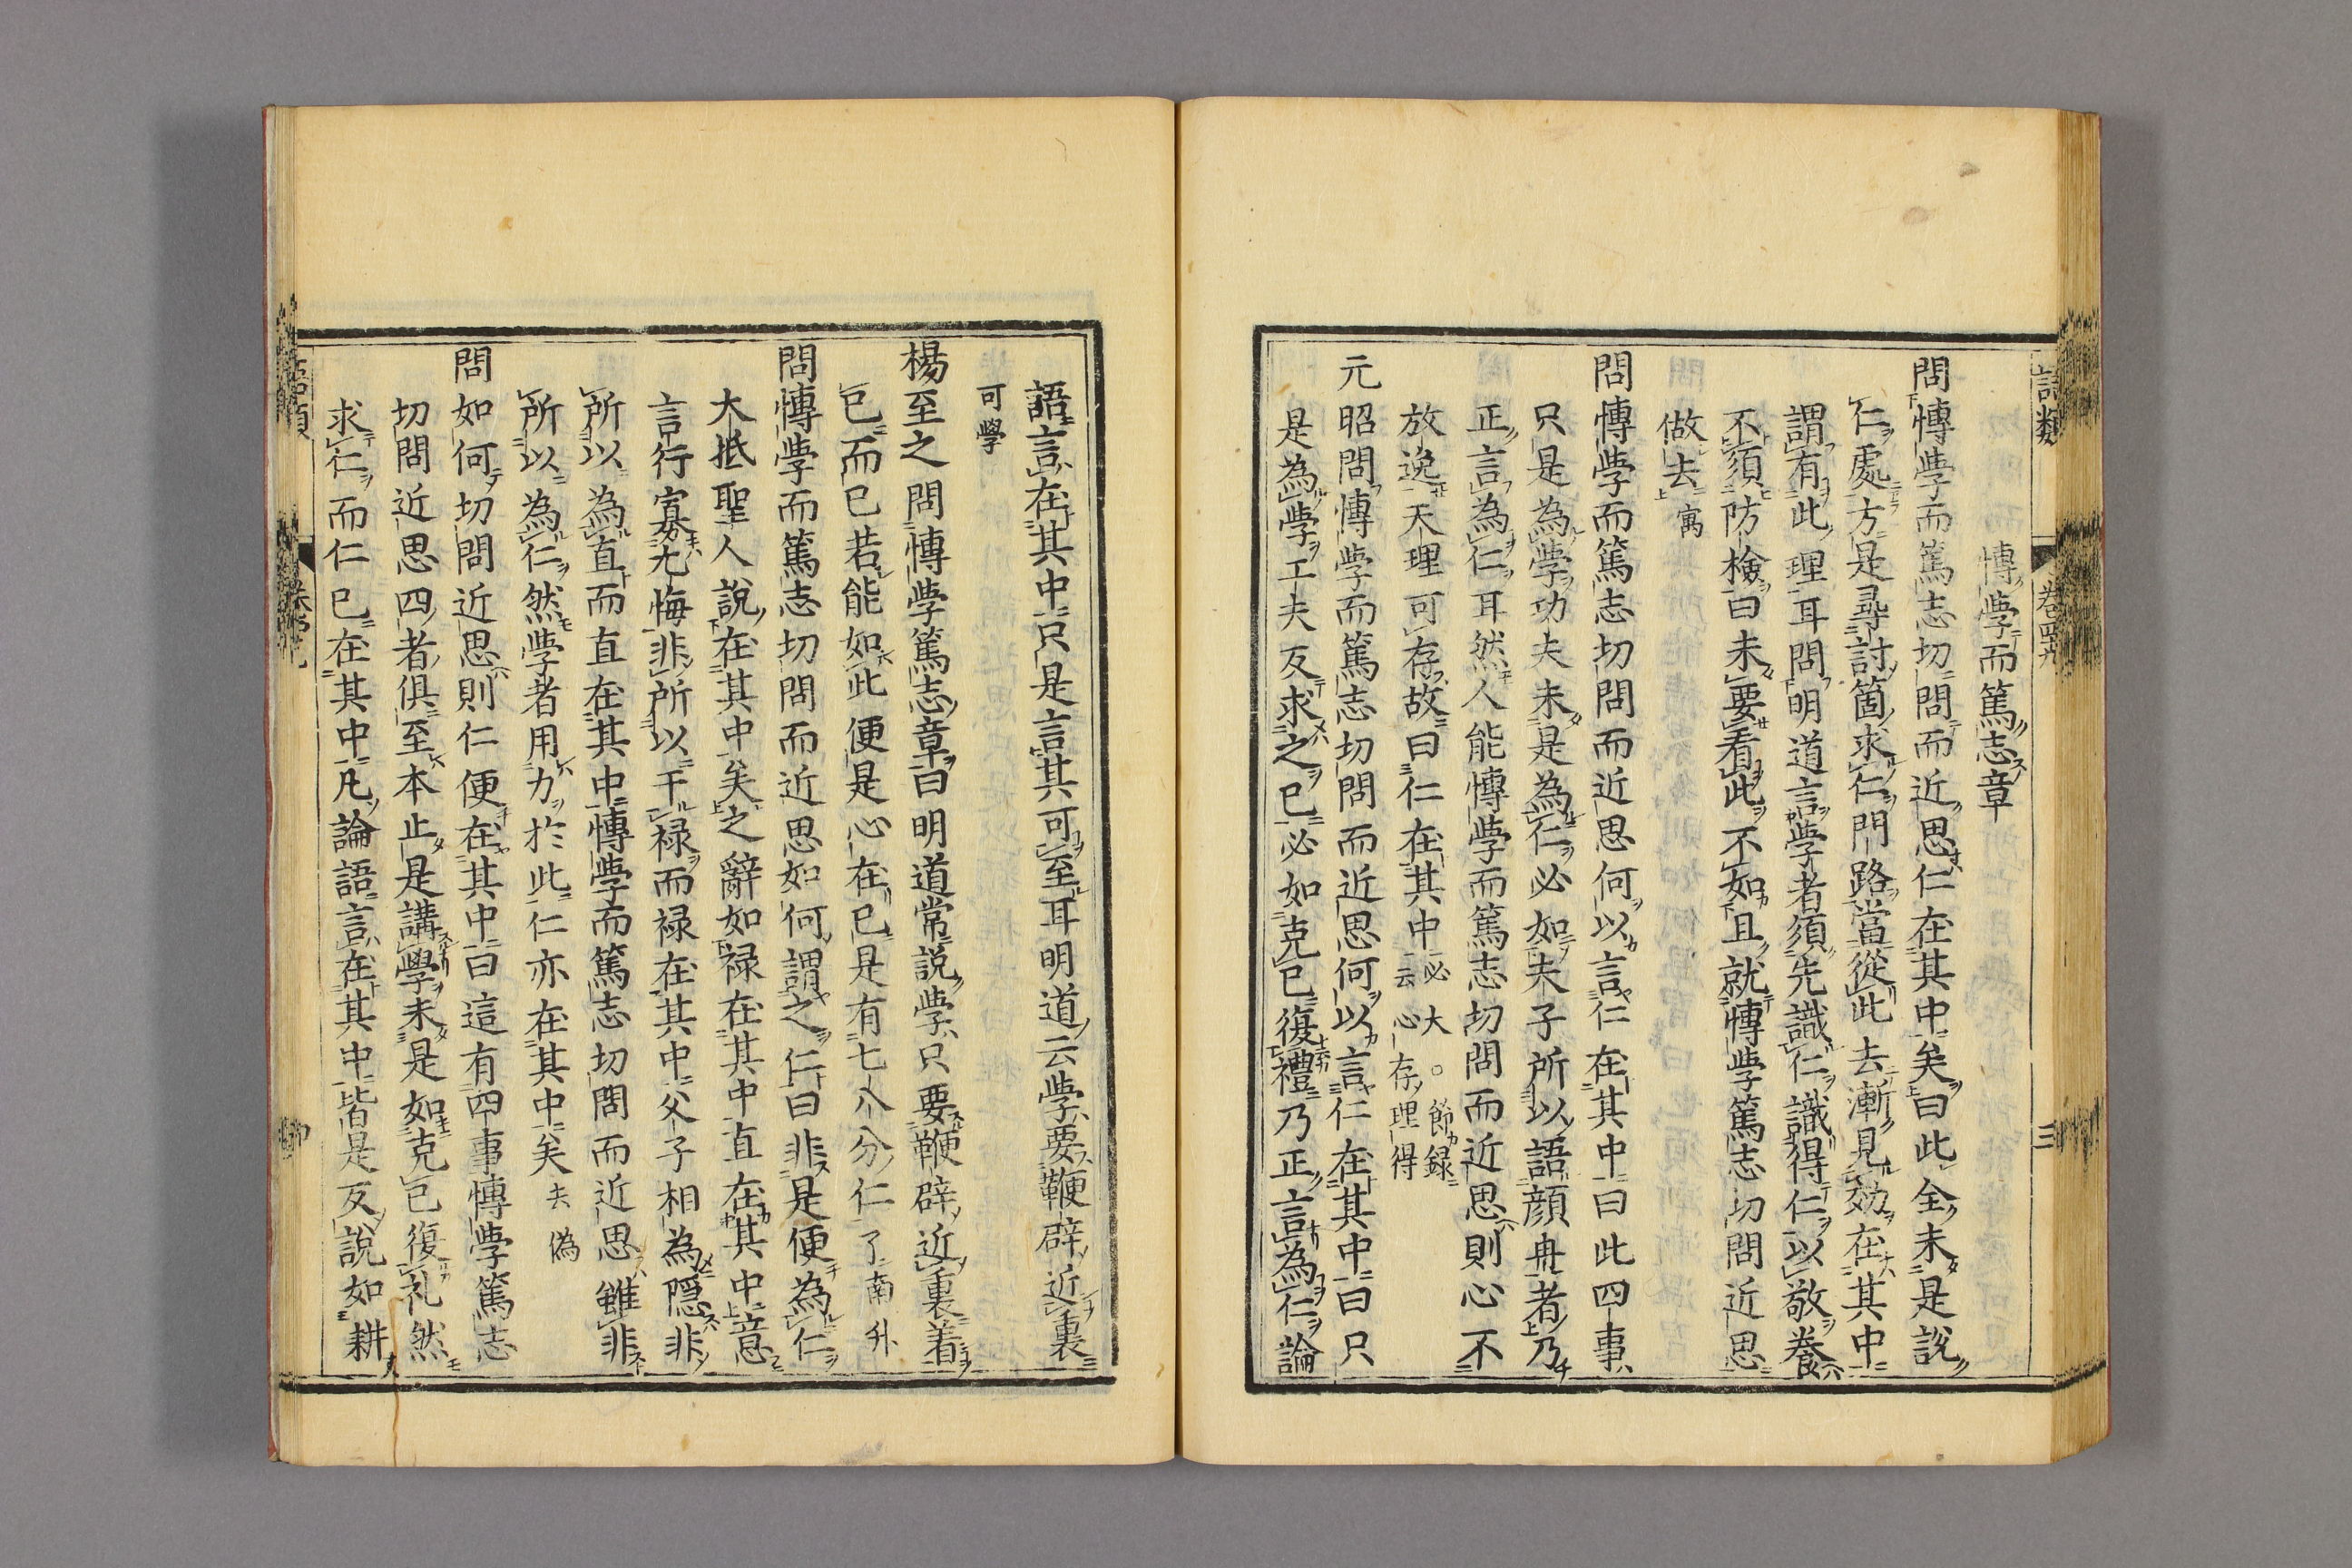 語類 卷四十九 三
博學而篤志章
問博學而篤志切問而近思仁在其中矣曰此全未是說
仁處方是尋討箇求仁門路當從此去漸見効在其中
謂有此理耳問明道言學者須先識仁識得仁以敬養
不須防檢曰未要看此不如且就博學篤志切問近思
做去寓
問博學而篤志切問而近思何以言仁在其中曰此四事
只是為學功夫未是為仁必如夫子所以語顏冉者乃
正言為仁耳然人能博學而篤志切問而近思則心不
放逸天理可存故曰仁在其中必大○節錄
云心存理得
元昭問博學而篤志切問而近思何以言仁在其中曰只
是為學工夫反求之已必如克已復禮乃正言為仁論
語言在其中只是言其可至耳明道云學要鞭辟近裏
可學
楊至之問博學篤志章曰明道常說學只要鞭辟近裏着
已而已若能如此便是心在已是有七八分仁了南升
問博學而篤志切問而近思如何謂之仁曰非是便為仁
大抵聖人說在其中矣之辭如祿在其中直在其中意
言行寡尤悔非所以干祿而祿在其中父子相為隱非
所以為直而直在其中博學而篤志切問而近思雖非
所以為仁然學者用力於此仁亦在其中矣去偽
問如何切問近思則仁便在其中曰這有四事博學篤志
切問近思四者俱至本止是講學未是如克已復礼然
求仁而仁已在其中凡論語言在其中皆是反說如耕
語類